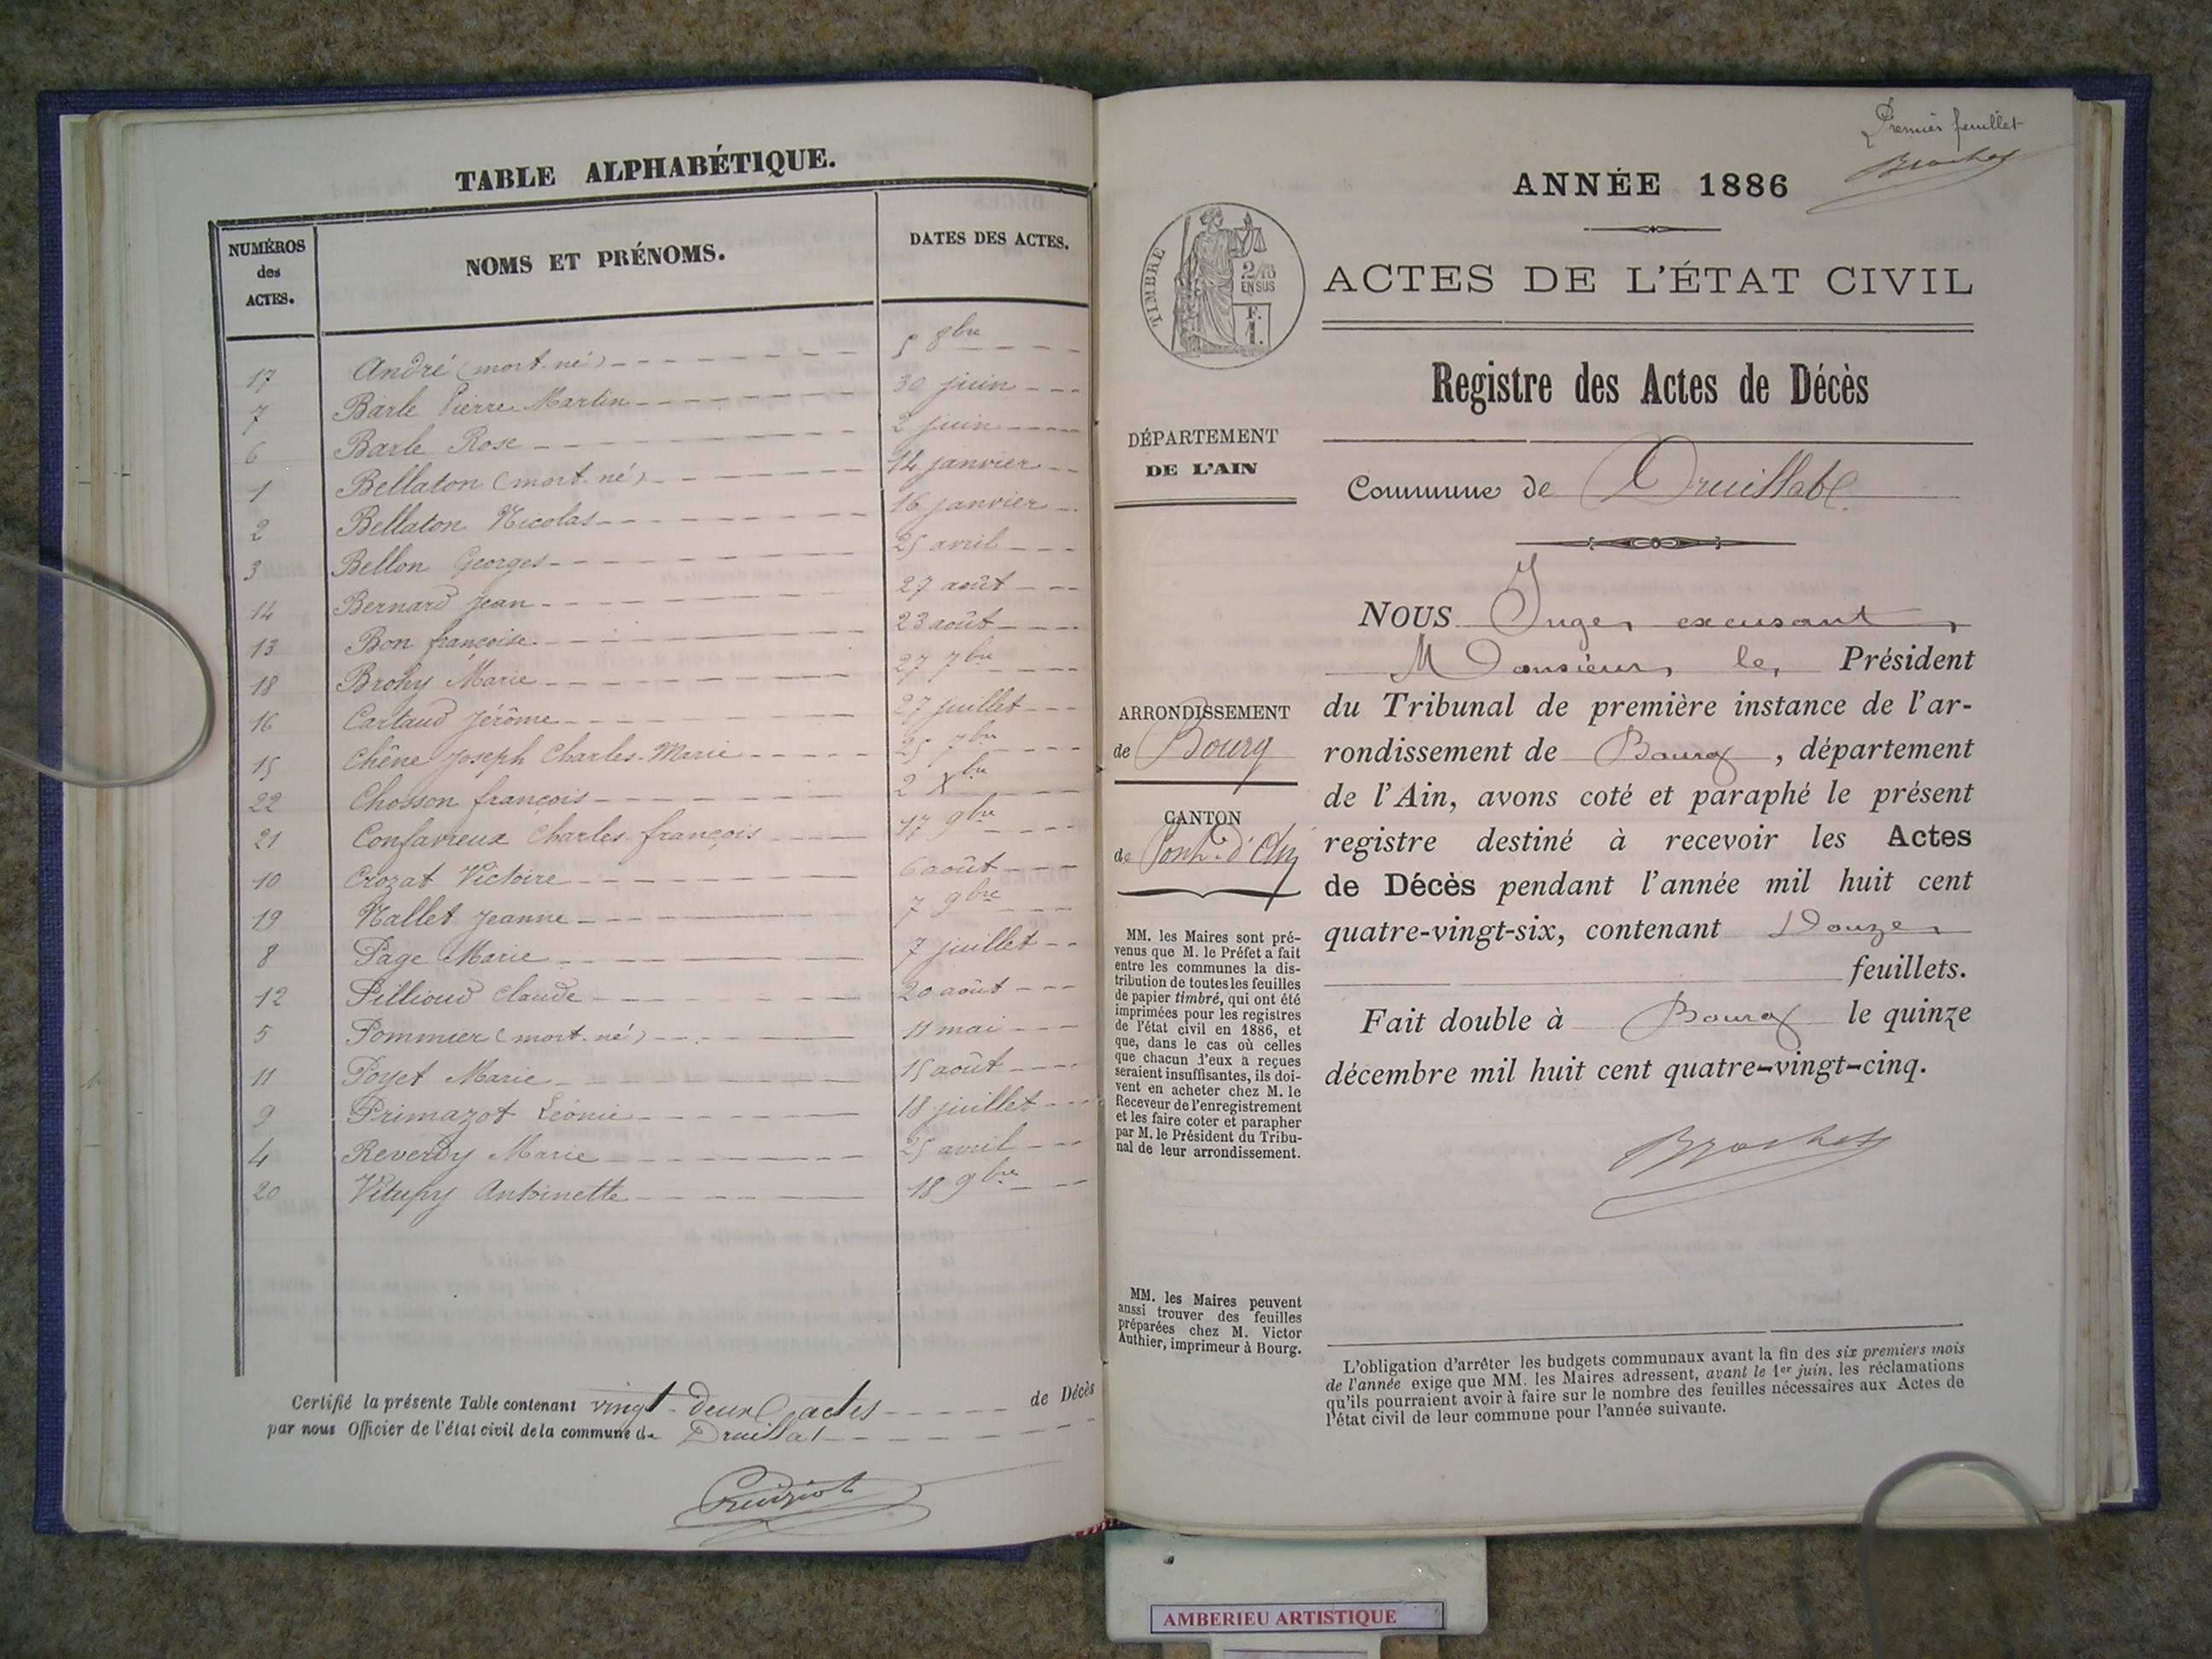 TABLE ALPHABÉTIQUE.
NUMÉROS des ACTES. NOMS ET PRÉNOMS. DATES DES ACTES.
17 André (mort-né) 5 8bre
7 Barle Pierre Martin 30 juin
6 Barle Rose 2 juin
1 Bellaton (mort-né) 14 janvier
2 Bellaton Nicolas 16 janvier
3 Bellon Georges 25 avril
14 Bernard Jean 27 août
13 Bon françoise 23 août
18 Brohy Marie 27 7bre
16 Cartaud Jérôme 27 juillet
15 Chêne Joseph Charles-Marie 25 7bre
22 Chosson françois 2 Xbre
21 Confavreux Charles françois 17 9bre
10 Crozat Victoire 6 août
19 Nallet Jeanne 7 9bre
8 Page Marie 7 juillet
12 Pillioud Claude 20 août
5 Pommier (mort-né) 11 mai
11 Poyet Marie 15 août
9 Primazot Léonie 18 juillet
4 Reverdy Marie 25 avril
20 Vitupy Antoinette 18 9bre
Certifié la présente Table contenant vingt-deux actes de Décès
par nous Officier de l'état civil de la commune de Druillat
Premier feuillet
Brochet
ANNÉE 1886
TIMBRE
2/10
EN SUS
F.
1.
ACTES DE L'ÉTAT CIVIL
Registre des Actes de Décès
DÉPARTEMENT
DE L'AIN
Commune de Druillat
NOUS Juge excusant
Monsieur le Président
du Tribunal de première instance de l'ar-
rondissement de Bourg, département
de l'Ain, avons coté et paraphé le présent
registre destiné à recevoir les Actes
de Décès pendant l'année mil huit cent
quatre-vingt-six, contenant Douze
feuillets.
Fait double à Bourg le quinze
décembre mil huit cent quatre-vingt-cinq.
Brochet
ARRONDISSEMENT
de Bourg
CANTON
de Pont-d'Ain
MM. les Maires sont pré-
venus que M. le Préfet a fait
entre les communes la dis-
tribution de toutes les feuilles
de papier timbré, qui ont été
imprimées pour les registres
de l'état civil en 1886, et
que, dans le cas où celles
que chacun d'eux a reçues
seraient insuffisantes, ils doi-
vent en acheter chez M. le
Receveur de l'enregistrement
et les faire coter et parapher
par M. le Président du Tribu-
nal de leur arrondissement.
MM. les Maires peuvent
aussi trouver des feuilles
préparées chez M. Victor
Authier, imprimeur à Bourg.
L'obligation d'arrêter les budgets communaux avant la fin des six premiers mois
de l'année exige que MM. les Maires adressent, avant le 1er juin, les réclamations
qu'ils pourraient avoir à faire sur le nombre des feuilles nécessaires aux Actes de
l'état civil de leur commune pour l'année suivante.
AMBERIEU ARTISTIQUE